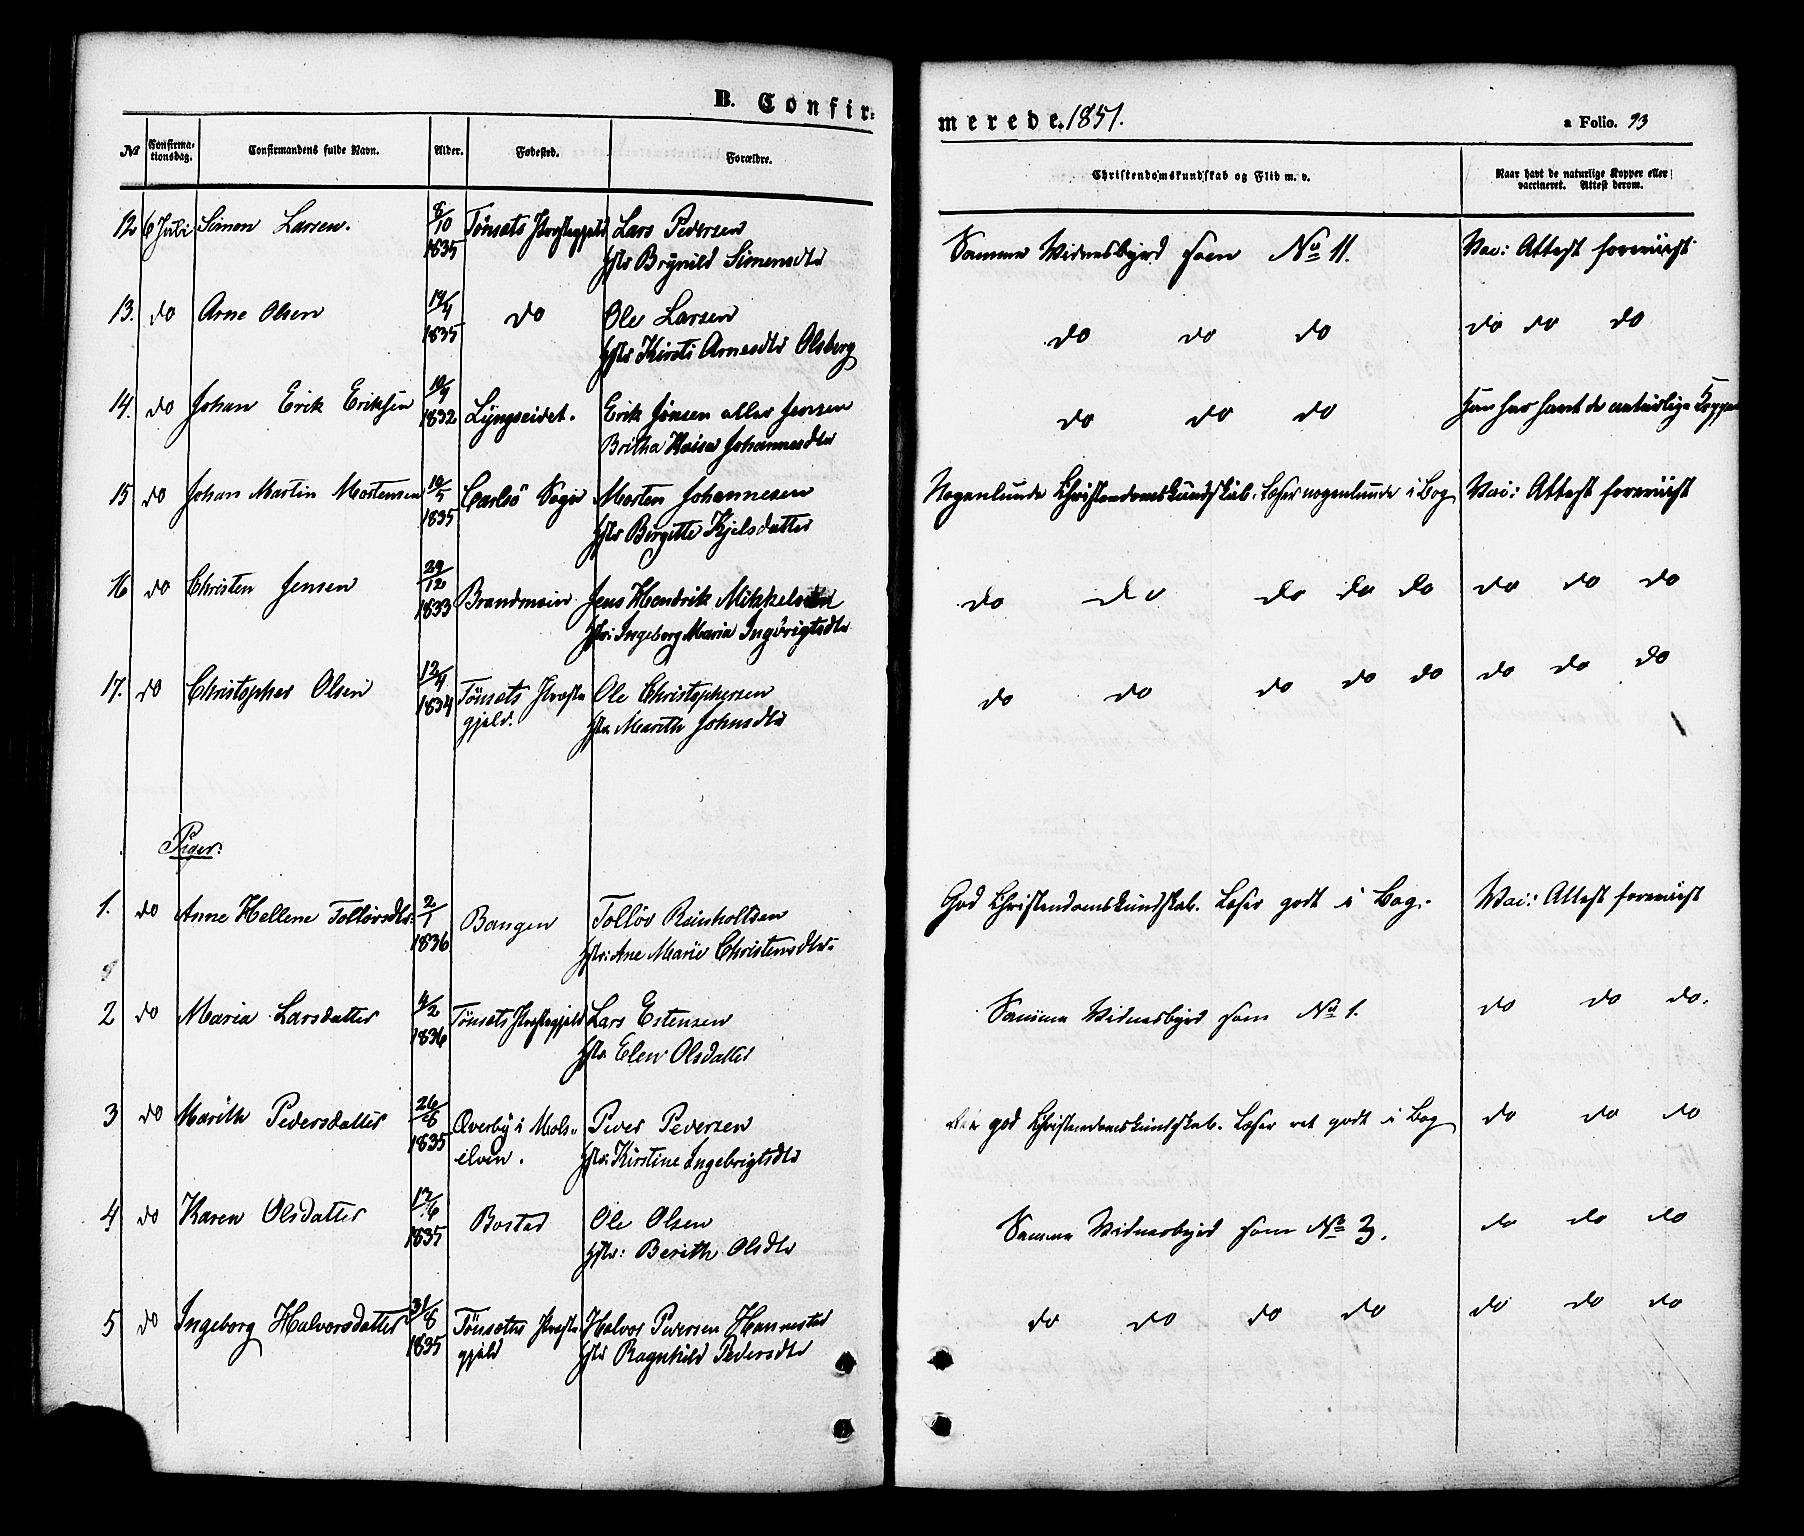 B. Confir-
merede. 1851.
a Folio. 93
No
Confirma-
tionsdag.
Confirmandens fulde Navn.
Alder.
Fødested.
Forældre.
Christendomskundskab og Flid m. v.
Naar havt de naturlige Kopper eller
vaccineret. Attest derom.
12 6 Juli Simen Larsen. 8/10 Tønsets Præstegjeld Lars Pedersen
1835 Hstr Brynild Simensdtr
Samme Vidnesbyrd som No 11. Vac: Attest foreviist
13. do Arne Olsen 14/4 do Ole Larsen
1835 Hstr Kirsti Arnesdtr Olsberg
do do do do do do
14. do Johan Erik Eriksen 1832 Lyngseidet. Erik Jonsen eller Jensen
Britha Kaisa Johannesdtr
do do do Han har havt de naturlige Kopper
15 do Johan Martin Mortensen 10/5 Carlsö Sogn Morten Johannesen
1835 Hstr Birgitte Kjelsdatter
Nogenlunde Christendomskundskab. Læser nogenlunde i Bog Vac: Attest foreviist
16 do Christen Jensen 29/12 Brandmoin Jens Hendrik Mikkelsen
1833 Hstr: Ingeborg Maria Ingbrigtsdtr
do do do do do do do do
17. do Christopher Olsen 12/4 Tönsets Præste Ole Christophersen
1834 gjeld. Hstr Marith Johnsdtr
do do do do do do do do
Piger:
1. do Anne Hellene Tollövsdtr. 2/1 Bangen Tollöv Reinholtsen
1836 Hstr: Ane Marie Christensdtr.
God Christendomskundskab. Læser godt i Bog. Vac: Attest foreviist
2 do Maria Larsdatter 4/2 Tönsets Præstegjeld Lars Estensen
1836 Hstr Elen Olsdatter
Samme Vidnesbyrd som No 1. do do do.
3 do Marith Pedersdatter 26/8 Överby i Mols- Peder Pedersen
1835 elven. Hstr: Kirstine Ingebrigtsdtr
god Christendomskundskab. Læser ret godt i Bog do do do
4 do Karen Olsdatter 12/6 Bostad Ole Olsen
1835 Hstr: Berith Olsdtr
Samme Vidnesbyrd som No 3. do do do
5 do Ingeborg Halvorsdatter 31/8 Tönsets Præste Halvor Pedersen Hammestad
1835 gjeld Hstr Ragnhild Pedersdtr
do do do do do do do